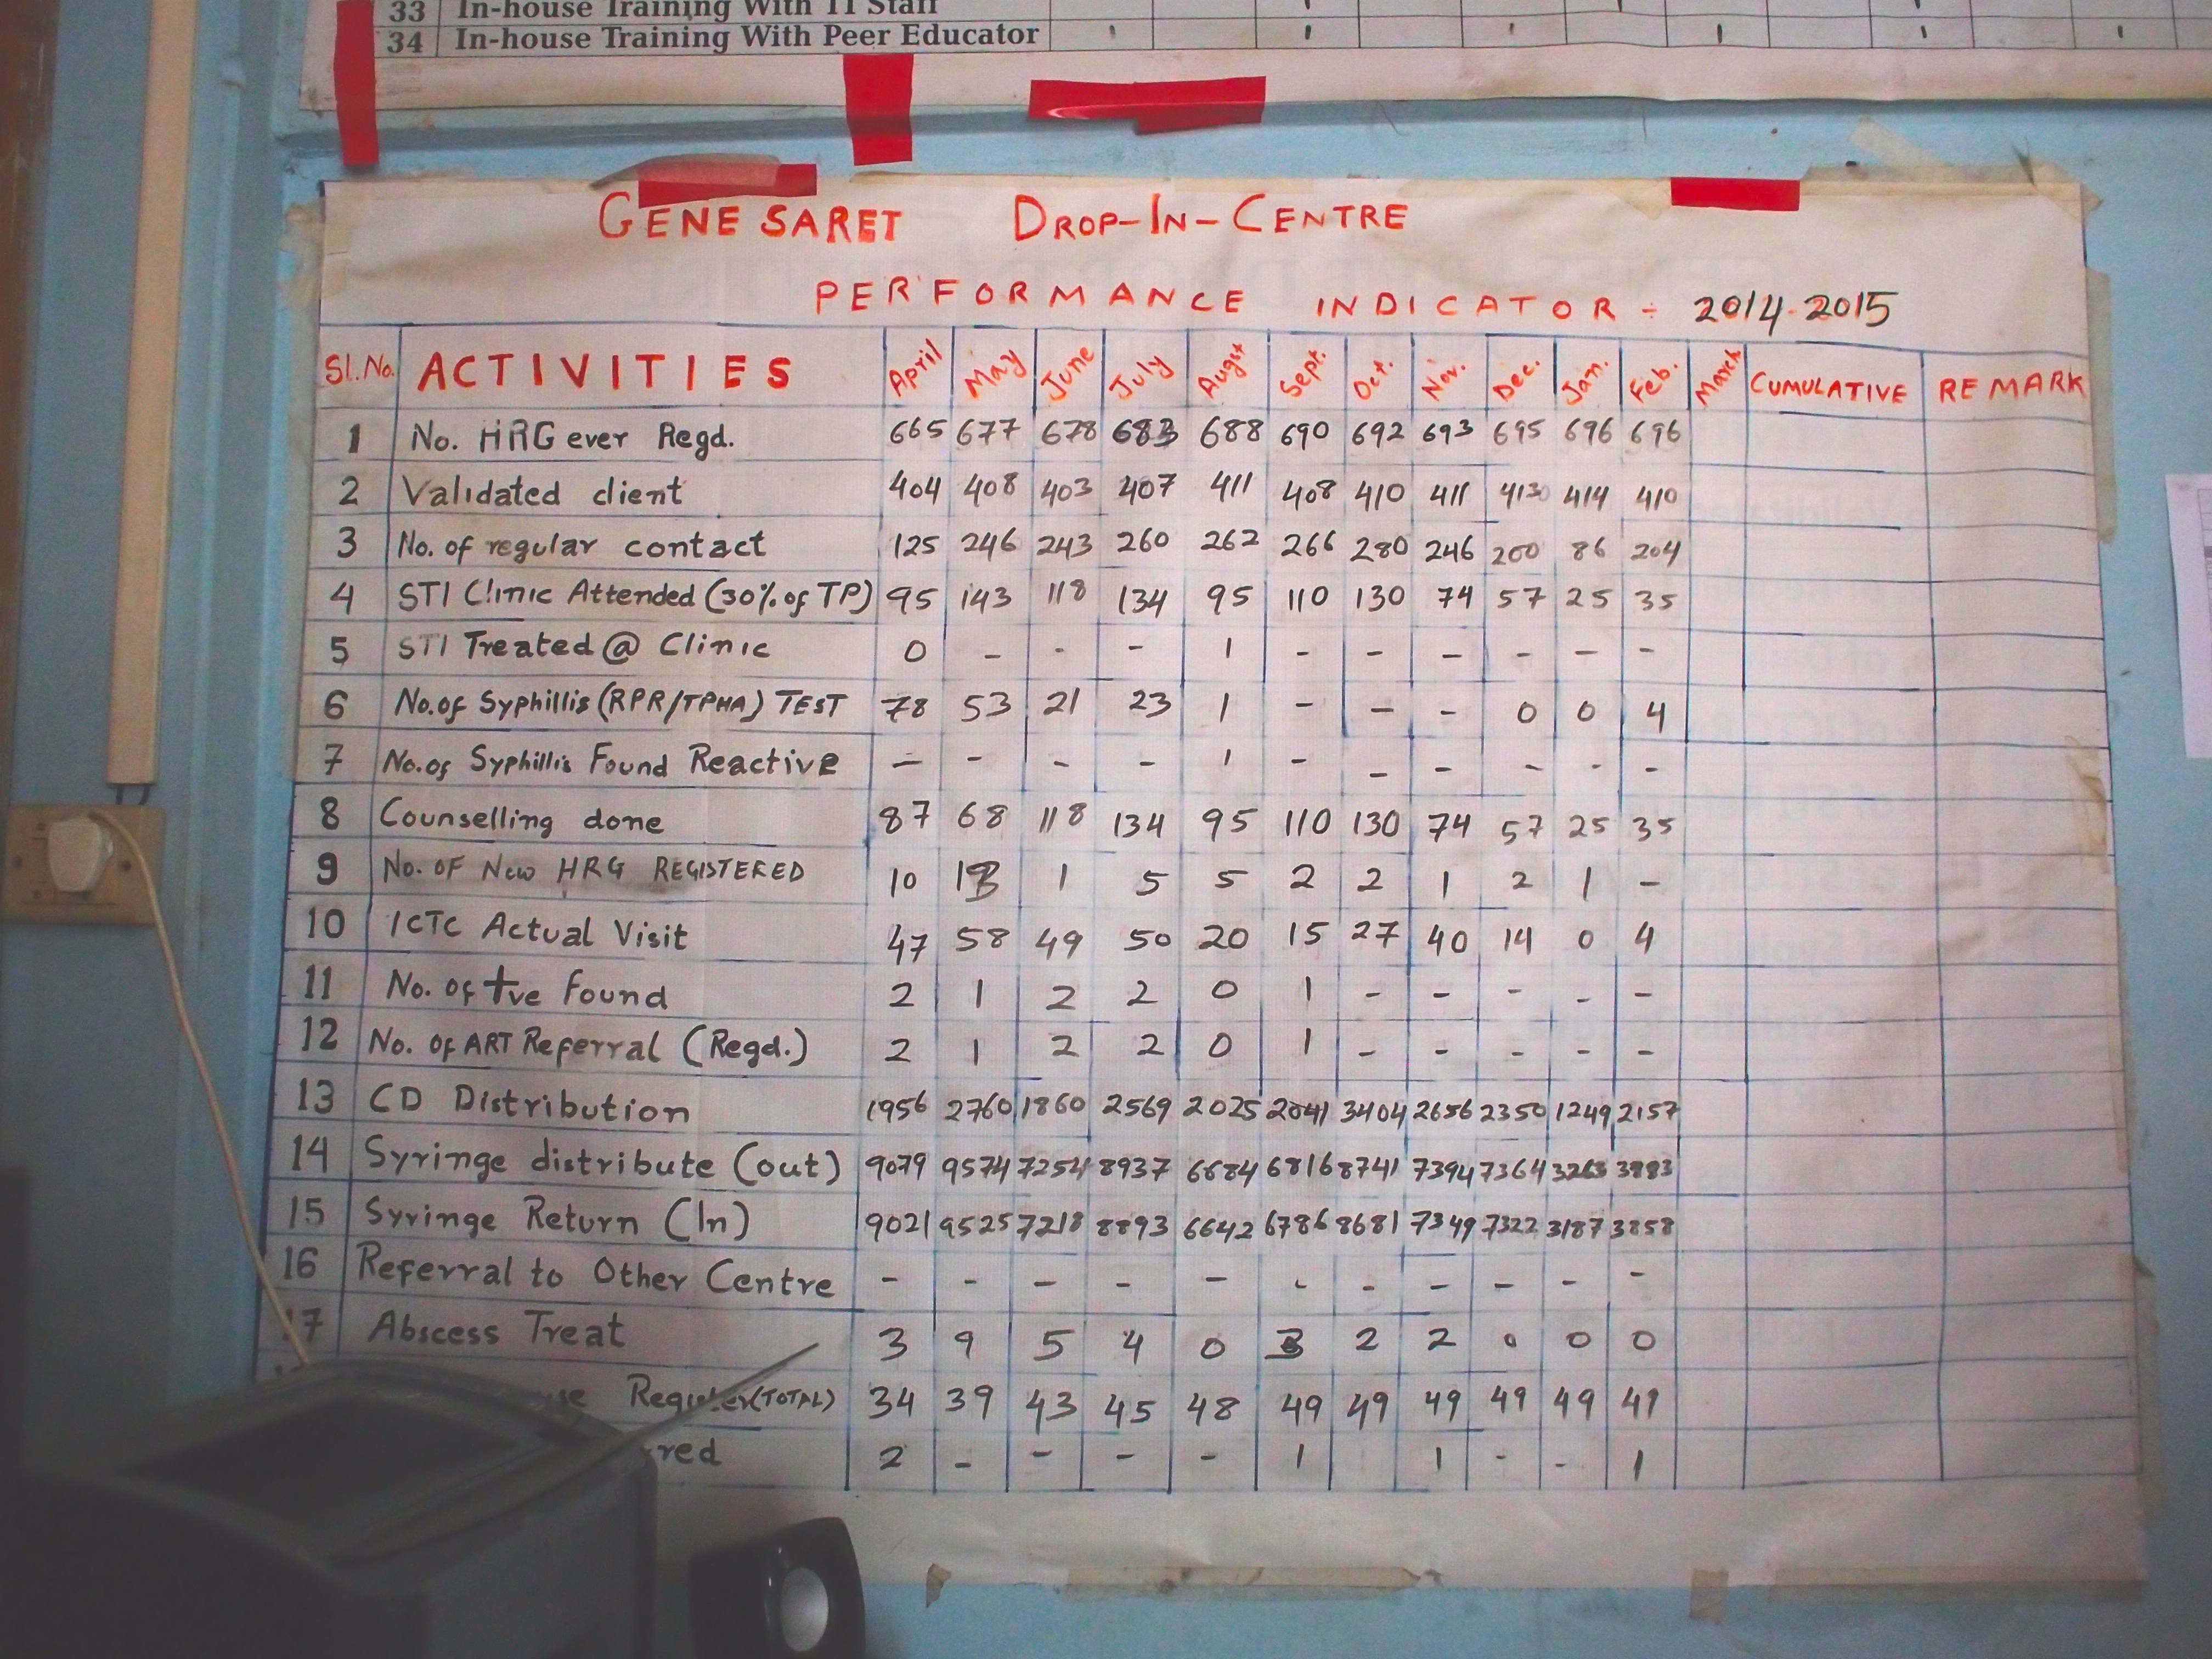 33 In-house Training With TI Staff
34 In-house Training With Peer Educator
GENESARET DROP-IN-CENTRE
PERFORMANCE INDICATOR - 2014-2015
Sl.No. ACTIVITIES April May June July Augst Sept. Oct. Nov. Dec. Jan. Feb. March CUMULATIVE REMARK
1 No. HRG ever Regd. 665 677 678 683 688 690 692 693 695 696 696
2 Validated client 404 408 403 407 411 408 410 411 413 414 410
3 No. of regular contact 125 246 243 260 262 266 280 246 200 86 204
4 STI Clinic Attended (30% of TP) 95 143 118 134 95 110 130 74 57 25 35
5 STI Treated @ Clinic 0 - - - 1 - - - - - -
6 No. of Syphillis (RPR/TPHA) TEST 78 53 21 23 1 - - - 0 0 4
7 No. of Syphillis Found Reactive - - - - 1 - - - - - -
8 Counselling done 87 68 118 134 95 110 130 74 57 25 35
9 No. OF New HRG REGISTERED 10 13 1 5 5 2 2 1 2 1 -
10 ICTC Actual Visit 47 58 49 50 20 15 27 40 14 0 4
11 No. of +ve found 2 1 2 2 0 1 - - - - -
12 No. of ART Referral (Regd.) 2 1 2 2 0 1 - - - - -
13 CD Distribution 1956 2760 1860 2569 2025 2041 3404 2656 2350 1249 2157
14 Syringe distribute (out) 9079 9574 7254 8937 6684 6816 8741 7394 7364 3263 3983
15 Syringe Return (In) 9021 9525 7218 8893 6642 6786 8681 7349 7322 3187 3858
16 Referral to Other Centre - - - - - - - - - - -
17 Abscess Treat 3 9 5 4 0 3 2 2 0 0 0
Register (TOTAL) 34 39 43 45 48 49 49 49 49 49 49
red 2 - - - - 1 1 - - 1